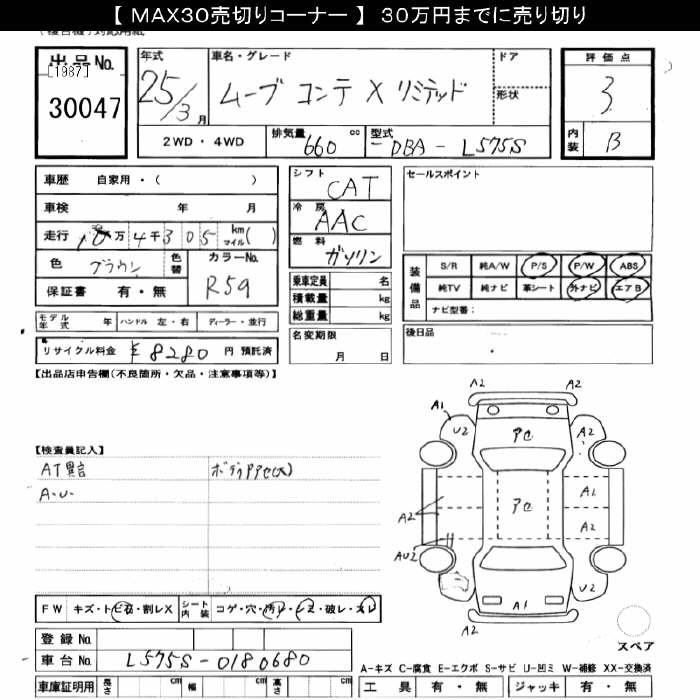 【 MAX30売切りコーナー 】 30万円までに売り切り
出品No.
[1987]
30047
年式
25/3月
車名・グレード
ムーブ コンテ X リミテッド
ドア
形状
評価点
3
内装
B
2WD・4WD
排気量
660
cc
型式
DBA-L575S
車歴 自家用・( )
車検 年 月
走行 万 4千 3 0 5 km マイル ( )
色 ブラウン 色替
カラーNo.
R59
保証書 有・無
シフト
CAT
冷房
AAC
燃料
ガソリン
乗車定員 名
積載量 kg
総重量 kg
セールスポイント
装備品
S/R 純A/W P/S P/W ABS
純TV 純ナビ 革シート 外ナビ エアB
ナビ型番:
モデル年式 年 ハンドル 左・右 ディーラー・並行
名変期限
月 日
後日品
リサイクル料金 ¥8280 円 預託済
【出品店申告欄(不良箇所・欠品・注意事項等)】
A2 A2
A1
U2 アC A2
【検査員記入】
AT異音
A・U・
アC
A1
A2
A2
AU2
U2
A1
A2
FW キズ・トビ石・割レX
シート内装 コゲ・穴・汚レ・シミ・破レ・スレ
登録No.
車台No. L575S-0180680
スペア
A-キズ C-腐食 E-エクボ S-サビ U-凹ミ W-補修 XX-交換済
車庫証明用 長さ cm 幅 cm 高さ cm
工具 有・無 ジャッキ 有・無